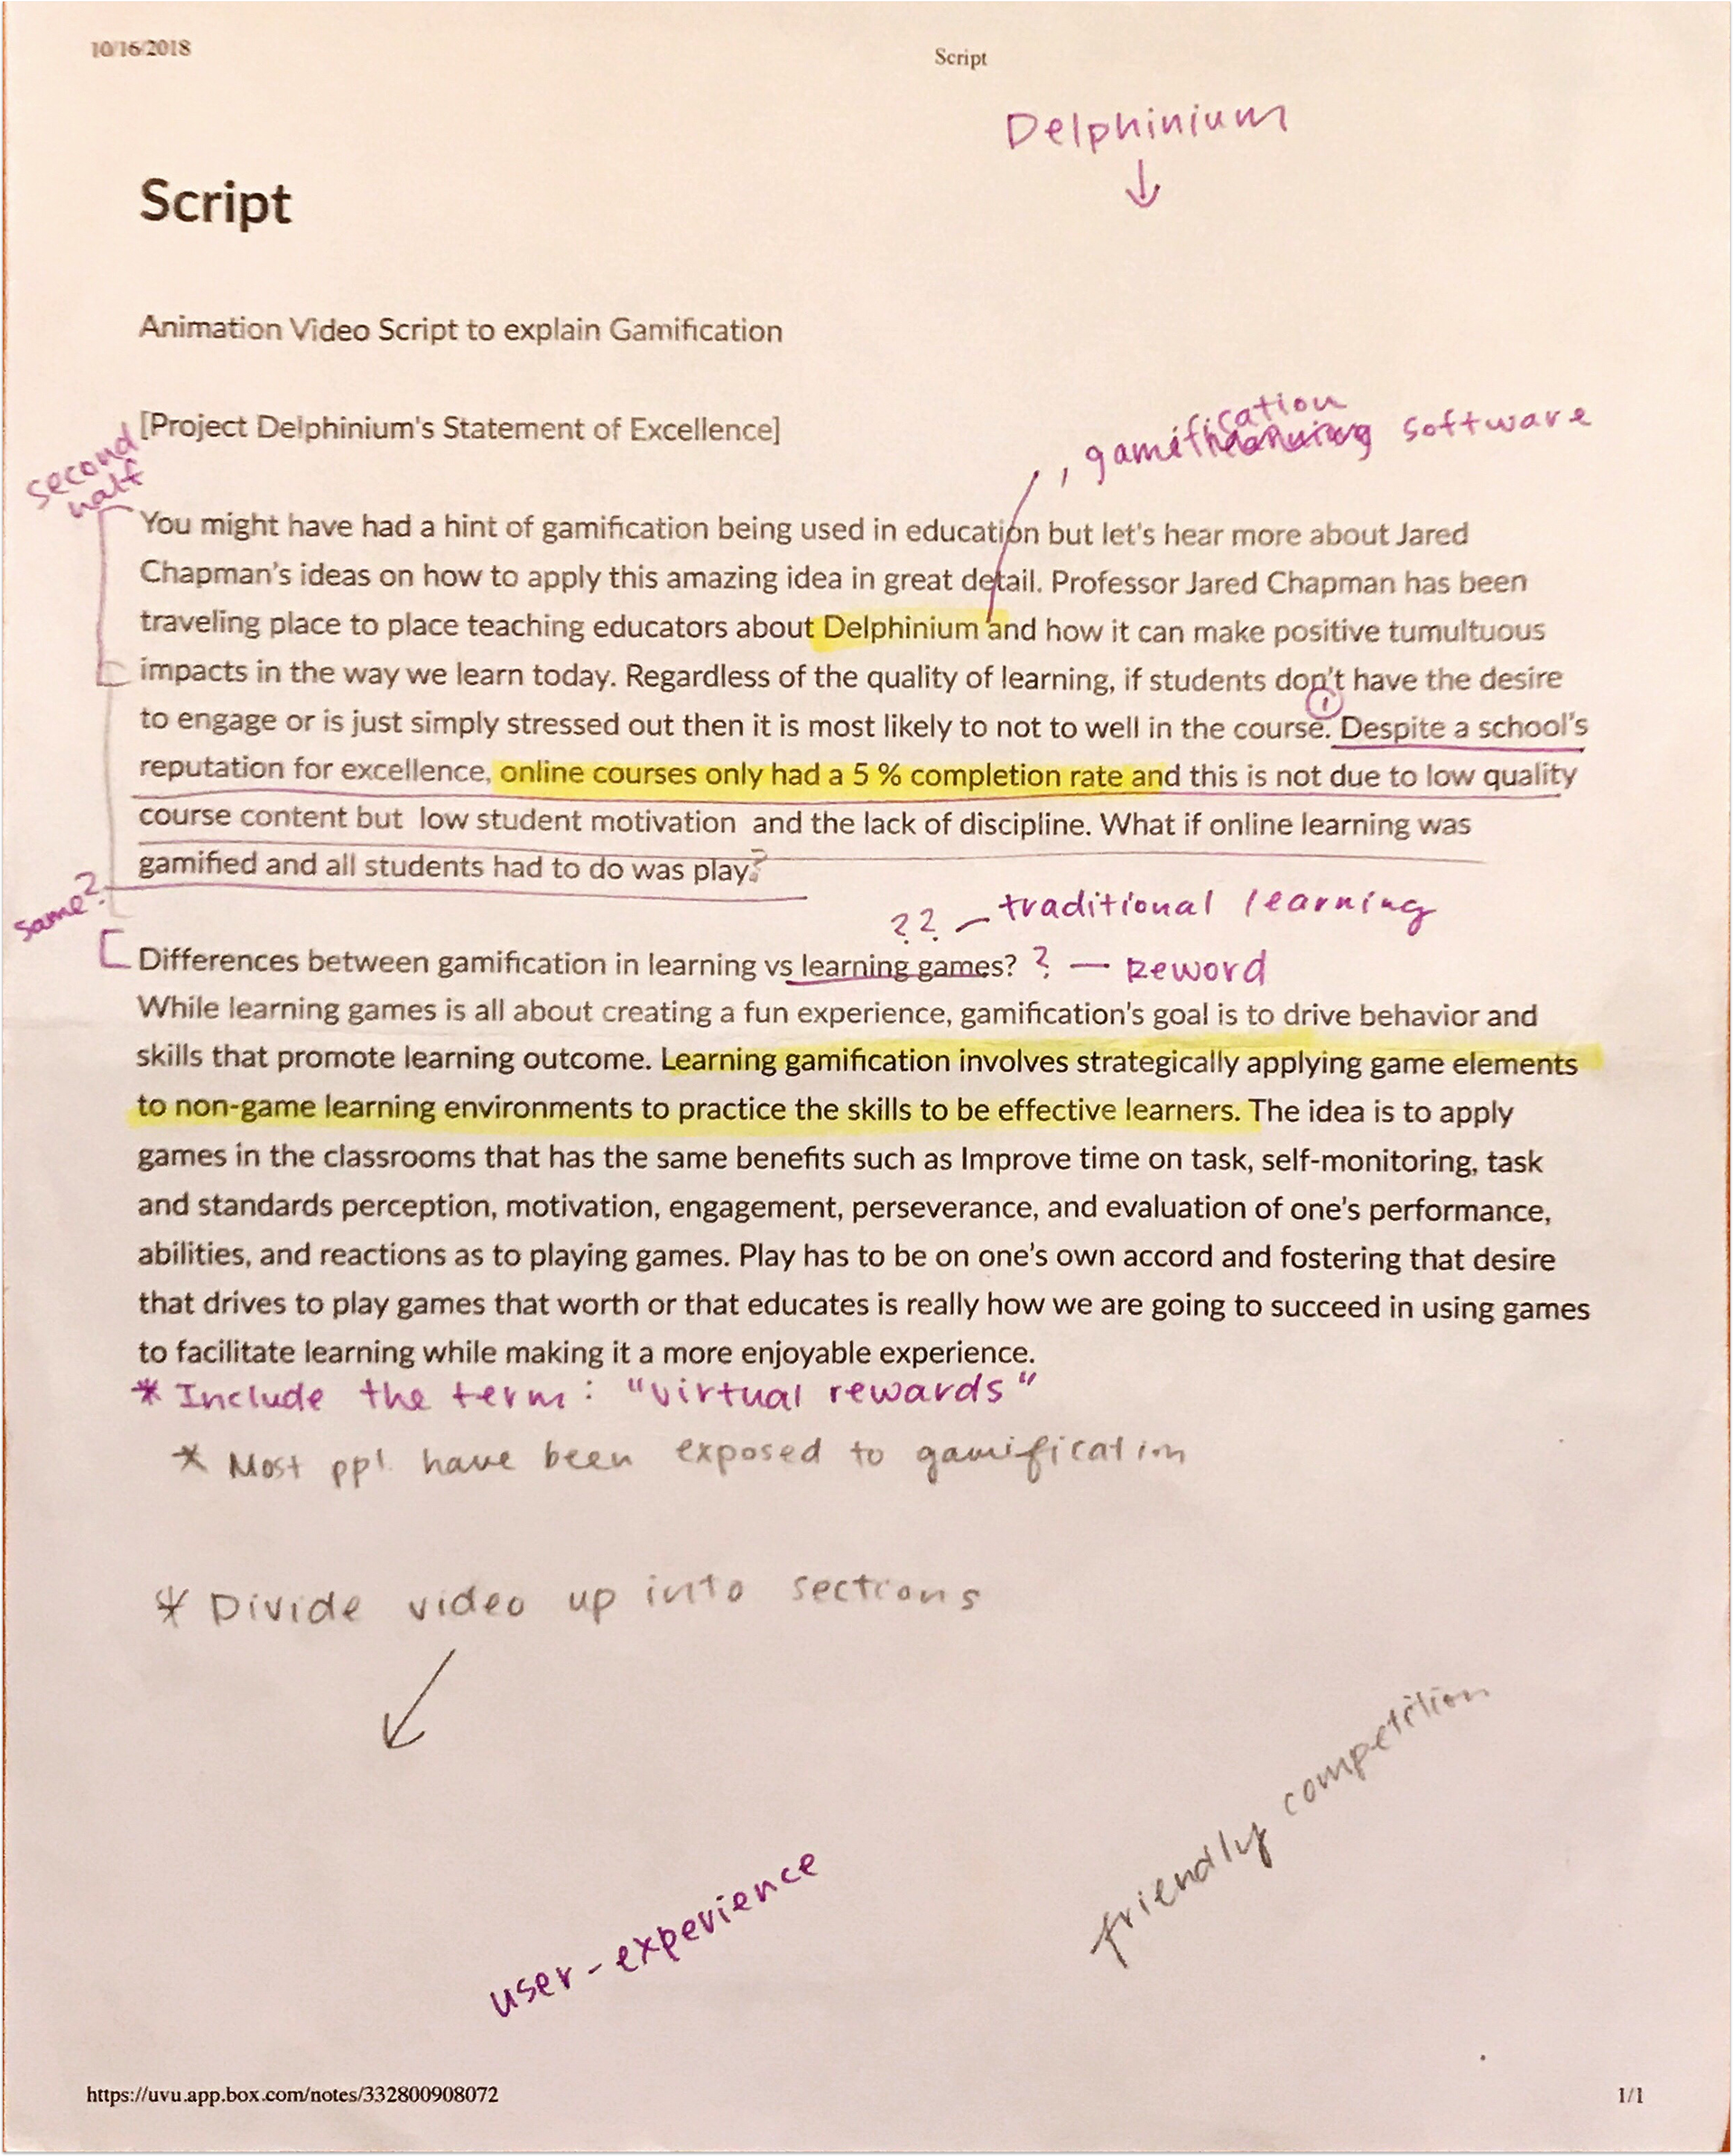 10/16/2018
Script
Delphinium
Script
Animation Video Script to explain Gamification
, gamification software
[Project Delphinium's Statement of Excellence]
second
half
You might have had a hint of gamification being used in education but let's hear more about Jared
Chapman's ideas on how to apply this amazing idea in great detail. Professor Jared Chapman has been
traveling place to place teaching educators about Delphinium and how it can make positive tumultuous
impacts in the way we learn today. Regardless of the quality of learning, if students don't have the desire
1
to engage or is just simply stressed out then it is most likely to not to well in the course. Despite a school's
reputation for excellence, online courses only had a 5 % completion rate and this is not due to low quality
course content but low student motivation and the lack of discipline. What if online learning was
gamified and all students had to do was play?
same?
?? – traditional learning
Differences between gamification in learning vs learning games? ? — Reword
While learning games is all about creating a fun experience, gamification's goal is to drive behavior and
skills that promote learning outcome. Learning gamification involves strategically applying game elements
to non-game learning environments to practice the skills to be effective learners. The idea is to apply
games in the classrooms that has the same benefits such as Improve time on task, self-monitoring, task
and standards perception, motivation, engagement, perseverance, and evaluation of one's performance,
abilities, and reactions as to playing games. Play has to be on one's own accord and fostering that desire
that drives to play games that worth or that educates is really how we are going to succeed in using games
to facilitate learning while making it a more enjoyable experience.
* Include the term: "virtual rewards"
* Most ppl have been exposed to gamification
* Divide video up into sections
friendly competition
user-experience
https://uvu.app.box.com/notes/332800908072
1/1